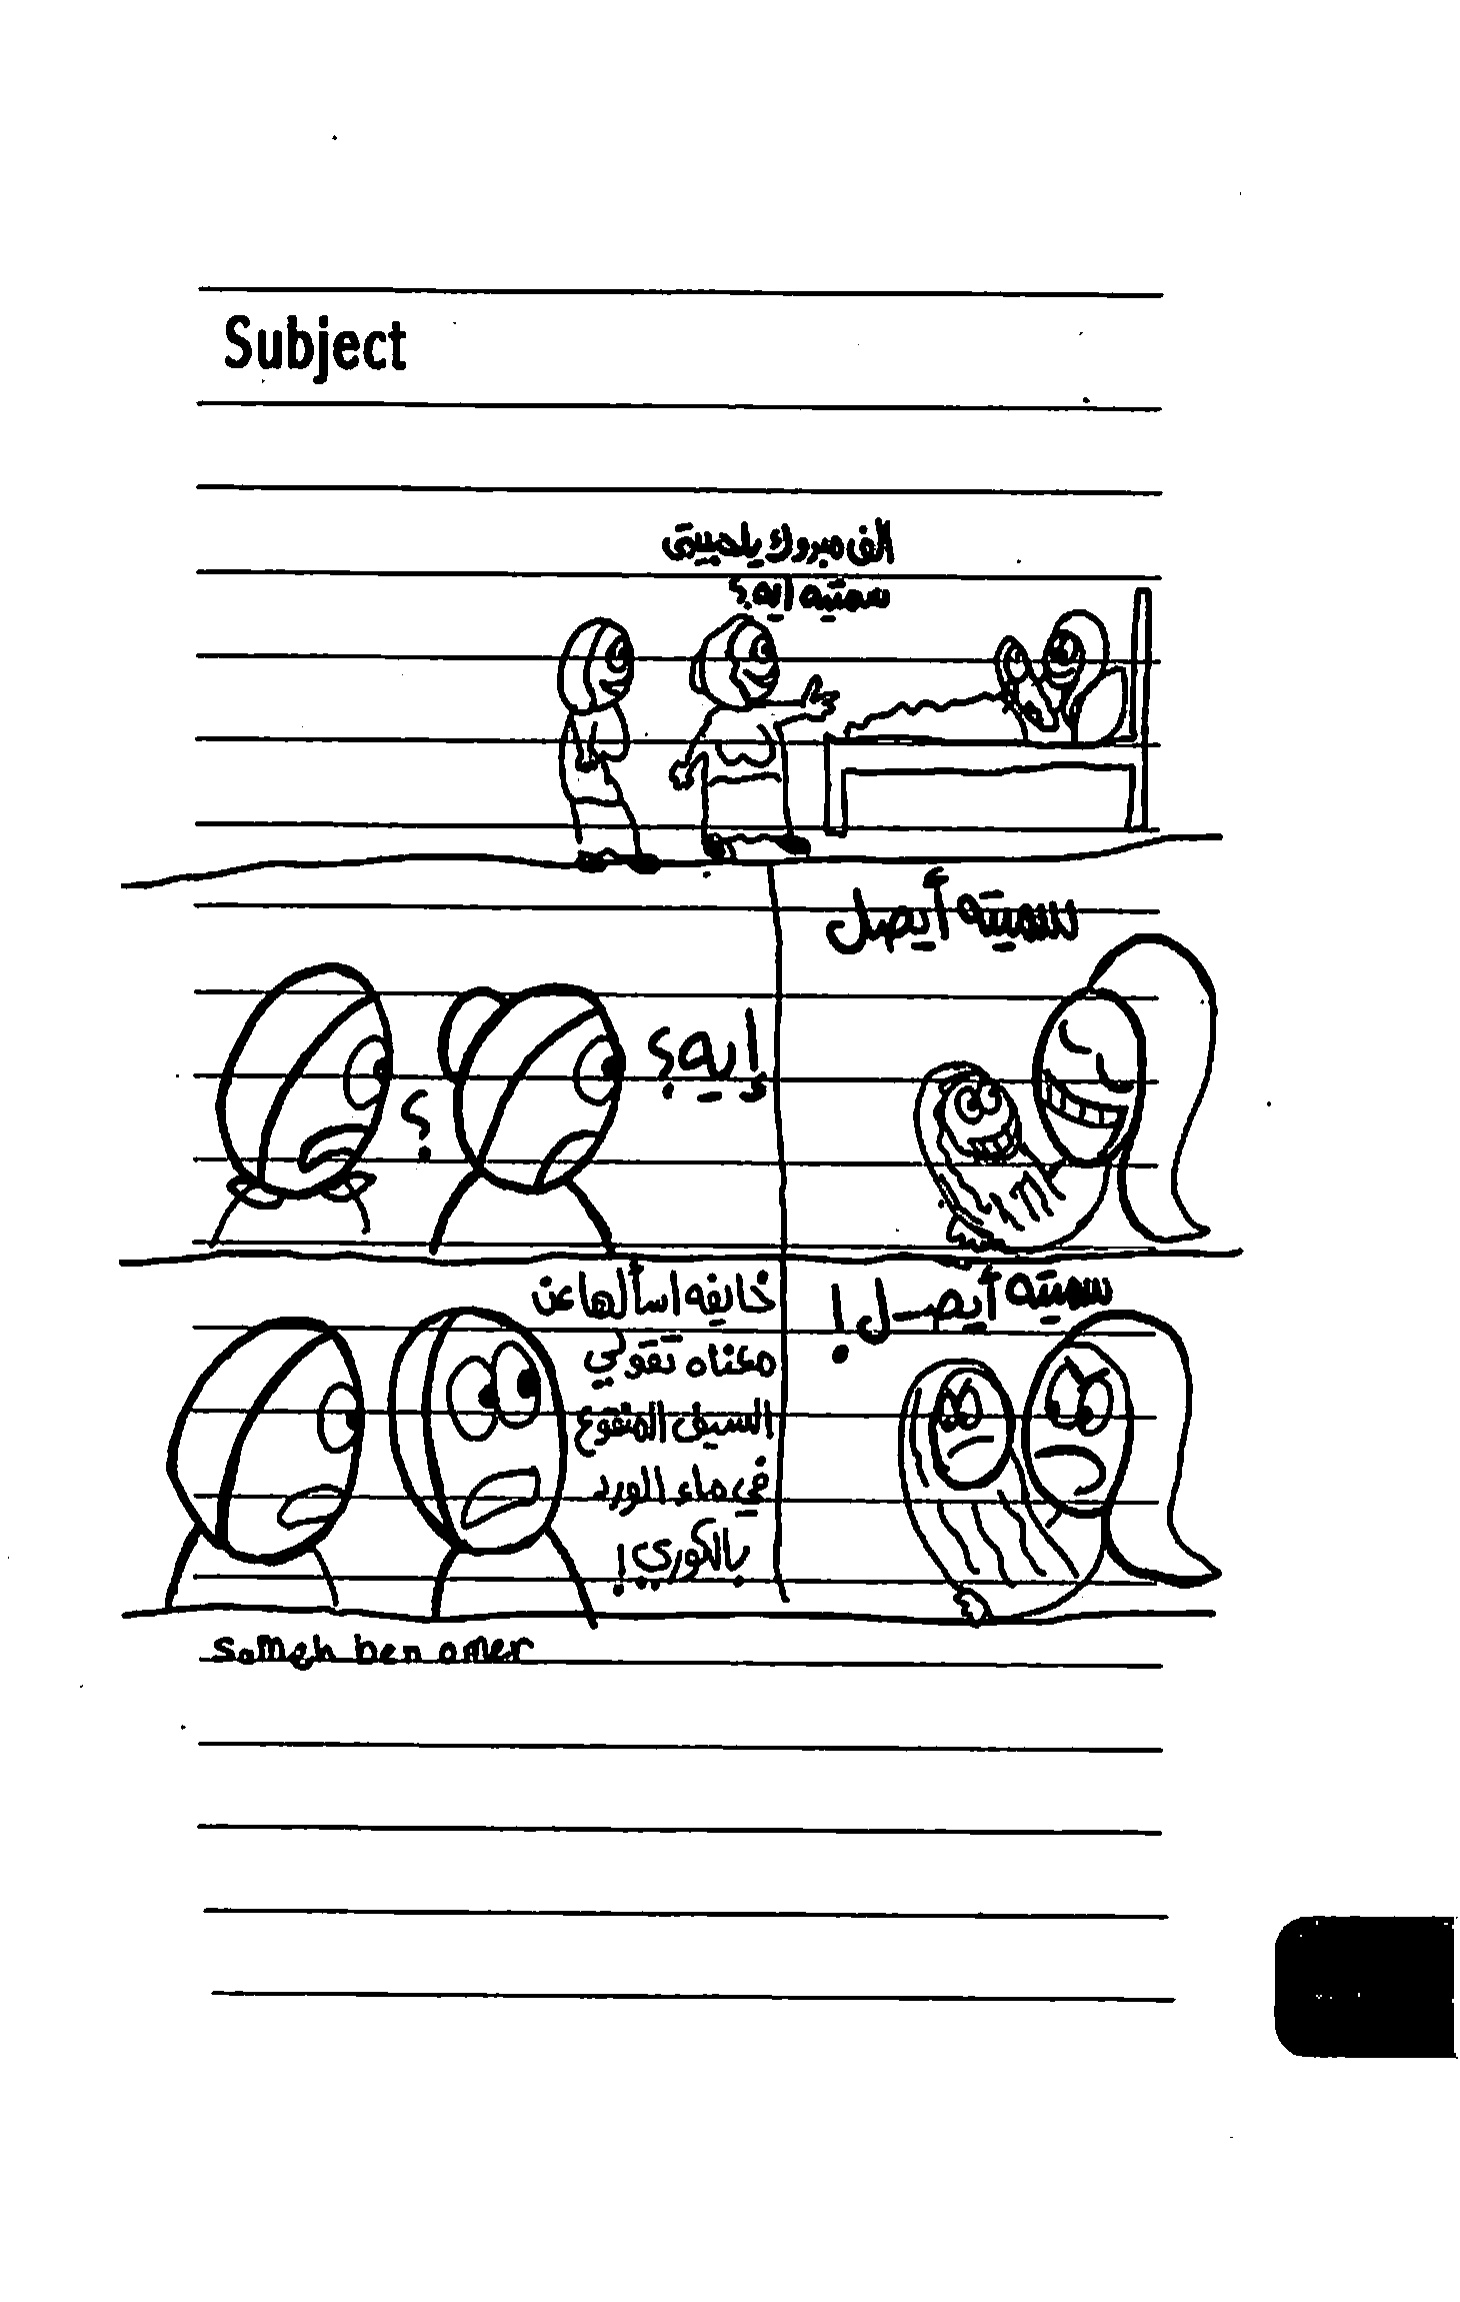 Subject
الف مبروك يا حبيبتي
سميتيه ايه؟
سميته أيصل
إيه؟
؟
سميته أيصل!
خايفه اسألها عن
معناه تقولي
السيف المنقوع
في ماء الورد
بالكوري!
sameh ben amer